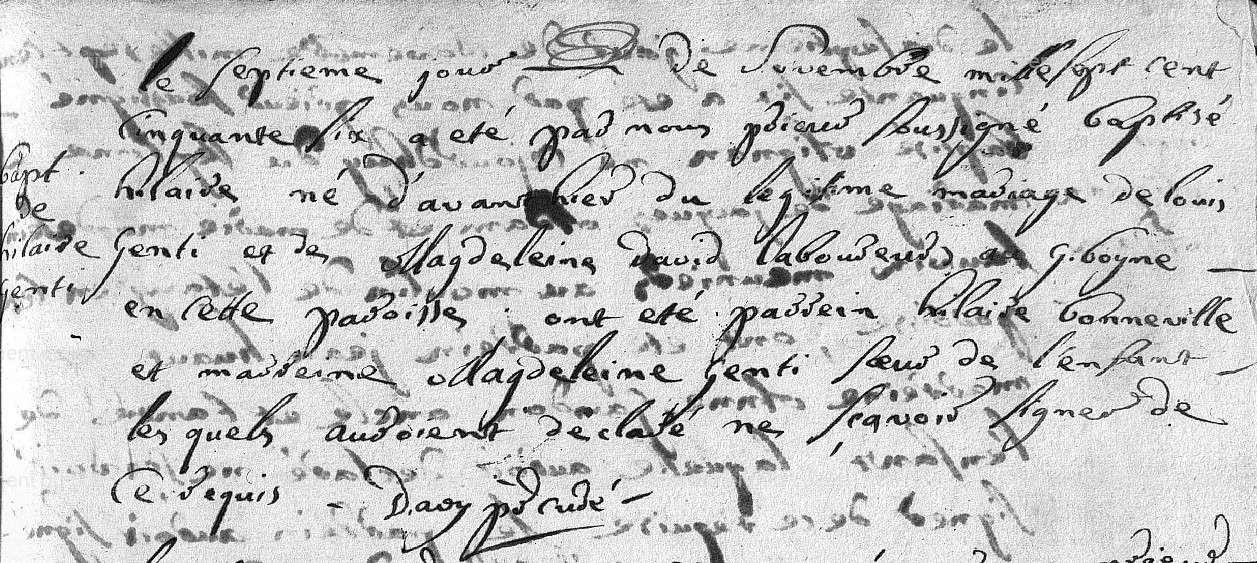 le septieme jour de Novembre mille sept cent
Cinquante six a eté par nous prieur soussigné baptisé
bapt.
de
hilaire
genti
hilaire né d'avant hier du legitime mariage de louis
genti et de Magdeleine david laboureur, a giboyne
en cette paroisse. ont eté parrein hilaire bonneville
et marreine Magdeleine genti soeur de l'enfant
les quels auroient declaré ne sçavoir signer de
Ce requis - Davy pr curé -